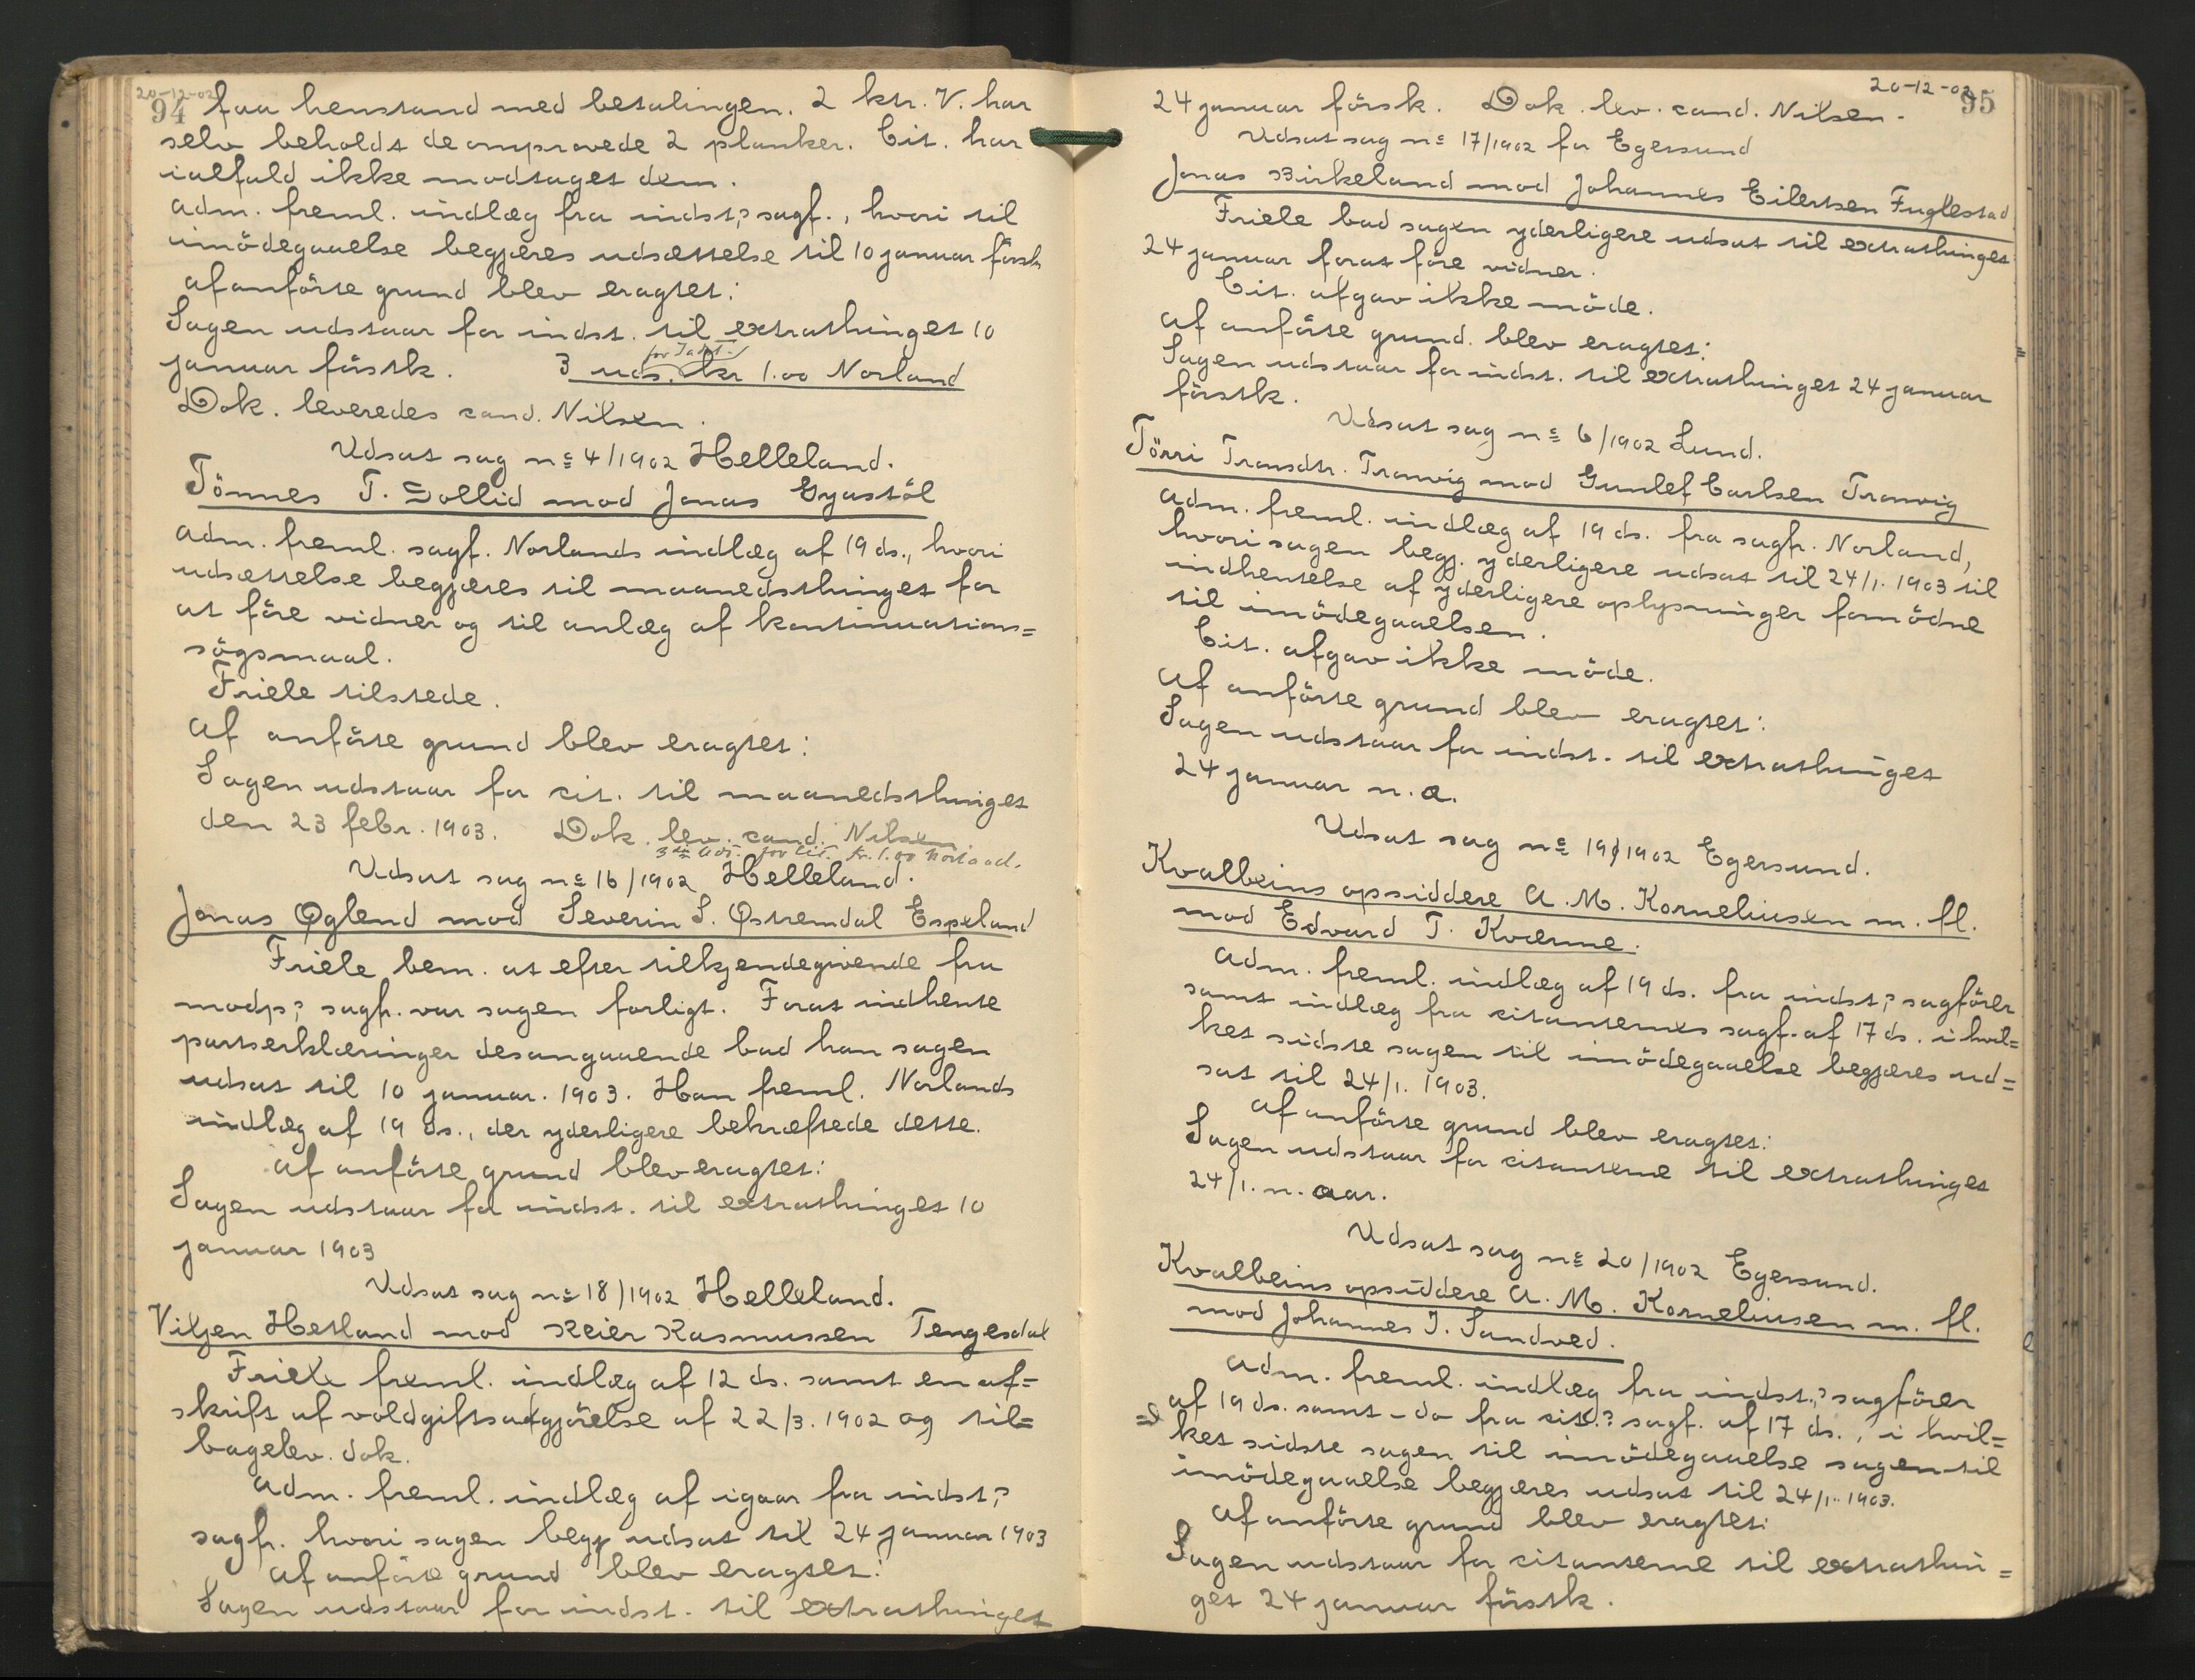 20-12-02
94 faa henstand med betalingen. 2 ktr. V. har
selv beholdt de omprovede 2 planker. Cit. har
ialfald ikke modtaget dem.
Adm. freml. indlæg fra indst.s sagf., hvori til
imödegaaelse begjæres udsættelse til 10 januar förstk
Af anförte grund blev eragtet:
Sagen udstaar for indst. til extrathinget 10
januar förstk. 3 uds. kr 1.00 Norland
for Indst.
Dok. leveredes cand. Nilsen.
Udsat sag no 4/1902 Helleland.
Tönnes T. Sollid mod Jonas Gyastöl
Adm. freml. sagf. Norlands indlæg af 19 ds., hvori
udsættelse begjæres til maanedsthinget for
at före vidner og til anlæg af kontinuations=
sögsmaal.
Friele tilstede.
Af anförte grund blev eragtet:
Sagen udstaar for cit. til maanedsthinget
den 23 febr. 1903. Dok. lev. cand. Nilsen
3die uds. for cit. kr. 1.00 Norland.
Udsat sag no 16/1902 Helleland.
Jonas Øglend mod Severin S. Østremdal Espeland
Friele bem. at efter tilkjendegivende fra
modp.s sagf. var sagen forligt. Forat indhente
partserklæringer desangaaende bad han sagen
udsat til 10 januar. 1903. Han freml. Norlands
indlæg af 19 ds., der yderligere bekræftede dette.
Af anförte grund blev eragtet:
Sagen udstaar for indst. til extrathinget 10
januar 1903
Udsat sag no 18/1902 Helleland.
Viljen Hetland mod Reier Rasmussen Tengesdal
Friele freml. indlæg af 12 ds. samt en af=
skrift af voldgiftsafgjörelse af 22/3. 1902 og til=
bagelev. dok.
Adm. freml. indlæg af igaar fra indst.s
sagf. hvori sagen begj udsat til 24 januar 1903
Af anförte grund blev eragtet:
Sagen udstaar for indst. til extrathinget
20-12-02
95
24 januar förstk. Dok. lev. cand. Nilsen.
Udsat sag no 17/1902 for Egersund
Jonas Birkeland mod Johannes Eilertsen Fuglestad
Friele bad sagen yderligere udsat til extrathinget
24 januar forat före vidner.
Cit. afgav ikke möde.
Af anförte grund. blev eragtet:
Sagen udstaar for indst. til extrathinget 24 januar
förstk.
Udsat sag no 6/1902 Lund.
Törri Tronsdtr. Tronvig mod Gunlef Carlsen Tronvig
Adm. freml. indlæg af 19 ds. fra sagf. Norland,
hvori sagen begj. yderligere udsat til 24/1. 1903 til
indhentelse af yderligere oplysninger fornödne
til imödegaaelsen.
Cit. afgav ikke möde.
Af anförte grund blev eragtet:
Sagen udstaar for indst. til extrathinget
24 januar n. a.
Udsat sag no 19/1902 Egersund.
Kvalbeins opsiddere A. M. Korneliusen m. fl.
mod Edvard T. Kværme.
Adm. freml. indlæg af 19 ds. fra indst.s sagförer
samt indlæg fra citanternes sagf. af 17 ds. i hvil=
ket sidste sagen til imödegaaelse begjæres ud=
sat til 24/1. 1903.
Af anförte grund blev eragtet:
Sagen udstaar for citanterne til extrathinget
24/1. n. aar.
Udsat sag no 20/1902 Egersund.
Kvalbeins opsiddere A. M. Korneliusen m. fl.
mod Johannes J. Sandved.
Adm. freml. indlæg fra indst.s sagförer
af 19 ds. samt - do fra cit.s sagf. af 17 ds., i hvil=
ket sidste sagen til imödegaaelse sagen til
imödegaaelse begjæres udsat til 24/1. 1903.
Af anförte grund blev eragtet:
Sagen udstaar for citanterne til extrathin=
get 24 januar förstk.